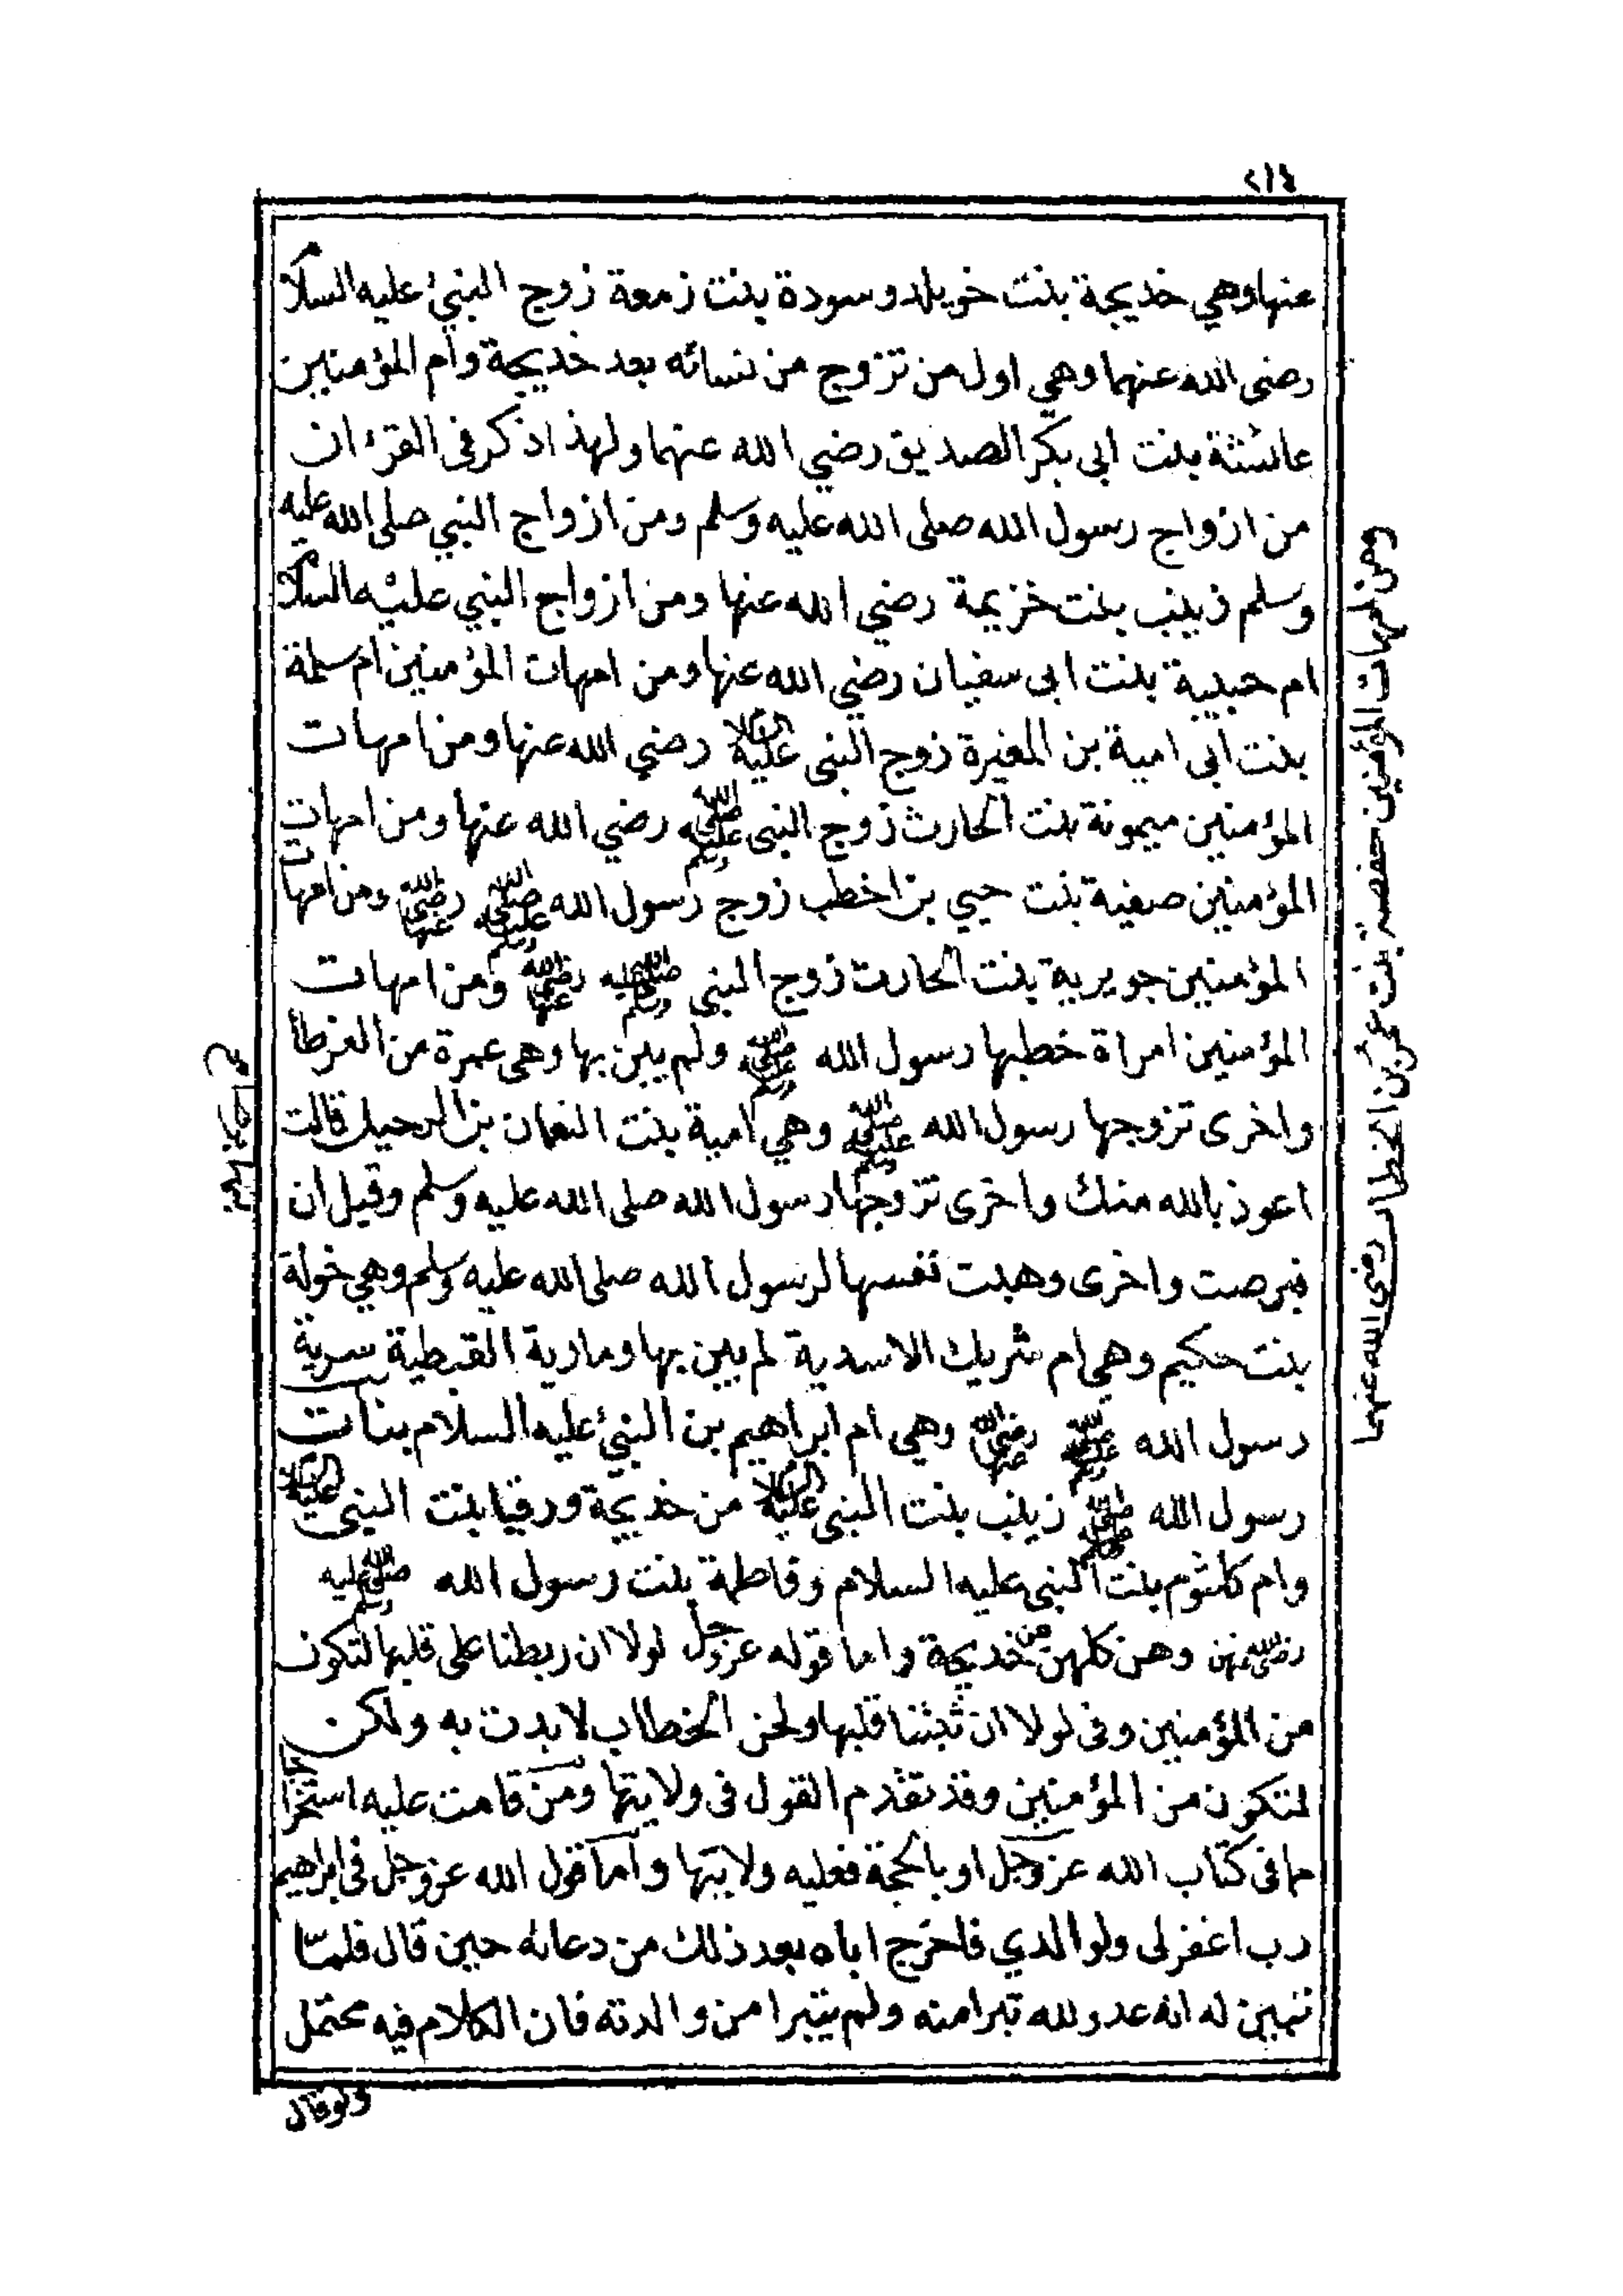 ٢١٤
عنها وهي خديجة بنت خويلد وسودة بنت زمعة زوج النبيء عليه السلام
رضى الله عنهما وهي اول من تزوج من نسائه بعد خديجة وام المؤمنين
عائشة بنت ابى بكر الصديق رضي الله عنهما ولهذا ذكر فى القرءان
من ازواج رسول الله صلى الله عليه وسلم ومن ازواج النبي صلى الله عليه
وسلم زينب بنت خزيمة رضي الله عنها ومن ازواج النبي عليه السلام
ام حبيبة بنت ابى سفيان رضي الله عنها ومن امهات المؤمنين ام سلمة
بنت ابى امية بن المغيرة زوج النبى عليه السلام رضي الله عنها ومن امهات
المؤمنين ميمونة بنت الحارث زوج النبى صلى الله عليه وسلم رضي الله عنها ومن امهات
المؤمنين صفية بنت حيي بن اخطب زوج رسول الله صلى الله عليه وسلم رضي الله عنها ومن امهات
المؤمنين جويرية بنت الحارث زوج النبي صلى الله عليه وسلم رضي الله عنها ومن امهات
المؤمنين امراة خطبها رسول الله صلى الله عليه وسلم ولم يبن بها وهى عمرة من القرطا
واخرى تزوجها رسول الله صلى الله عليه وسلم وهي امية بنت النعمان بن الرحيل قالت
اعوذ بالله منك واخرى تزوجها رسول الله صلى الله عليه وسلم وقيل ان
فبرصت واخرى وهبت نفسها لرسول الله صلى الله عليه وسلم وهي خولة
بنت حكيم وهي ام شريك الاسدية لم يبن بها ومارية القبطية سرية
رسول الله صلى الله عليه وسلم رضي الله عنها وهي ام ابراهيم بن النبيء عليه السلام بنات
رسول الله صلى الله عليه وسلم زينب بنت النبى عليه السلام من خديجة ورقيا بنت النبى عليه السلام
وام كلثوم بنت النبى عليه السلام وفاطمة بنت رسول الله صلى الله عليه وسلم
رضي الله عنهن وهن كلهن من خديجة واما قوله عز وجل لولا ان ربطنا على قلبها لتكون
من المؤمنين وفى لولا ان ثبتنا قلبها ولحن الخطاب لابدت به ولكن
لتكون من المؤمنين وقد تقدم القول فى ولايتها ومن قامت عليه استخراج
ما فى كتاب الله عز وجل او بالحجة فعليه ولايتها واما قول الله عز وجل فى ابراهيم
رب اغفر لى ولوالدي فاخرج اباه بعد ذلك من دعائه حين قال فلما
تبين له انه عدو لله تبرا منه ولم يتبرا من والدته فان الكلام فيه محتمل
ولو قال
ومن امهات المؤمنين حفصة بنت عمر بن الخطاب رضى الله عنهما